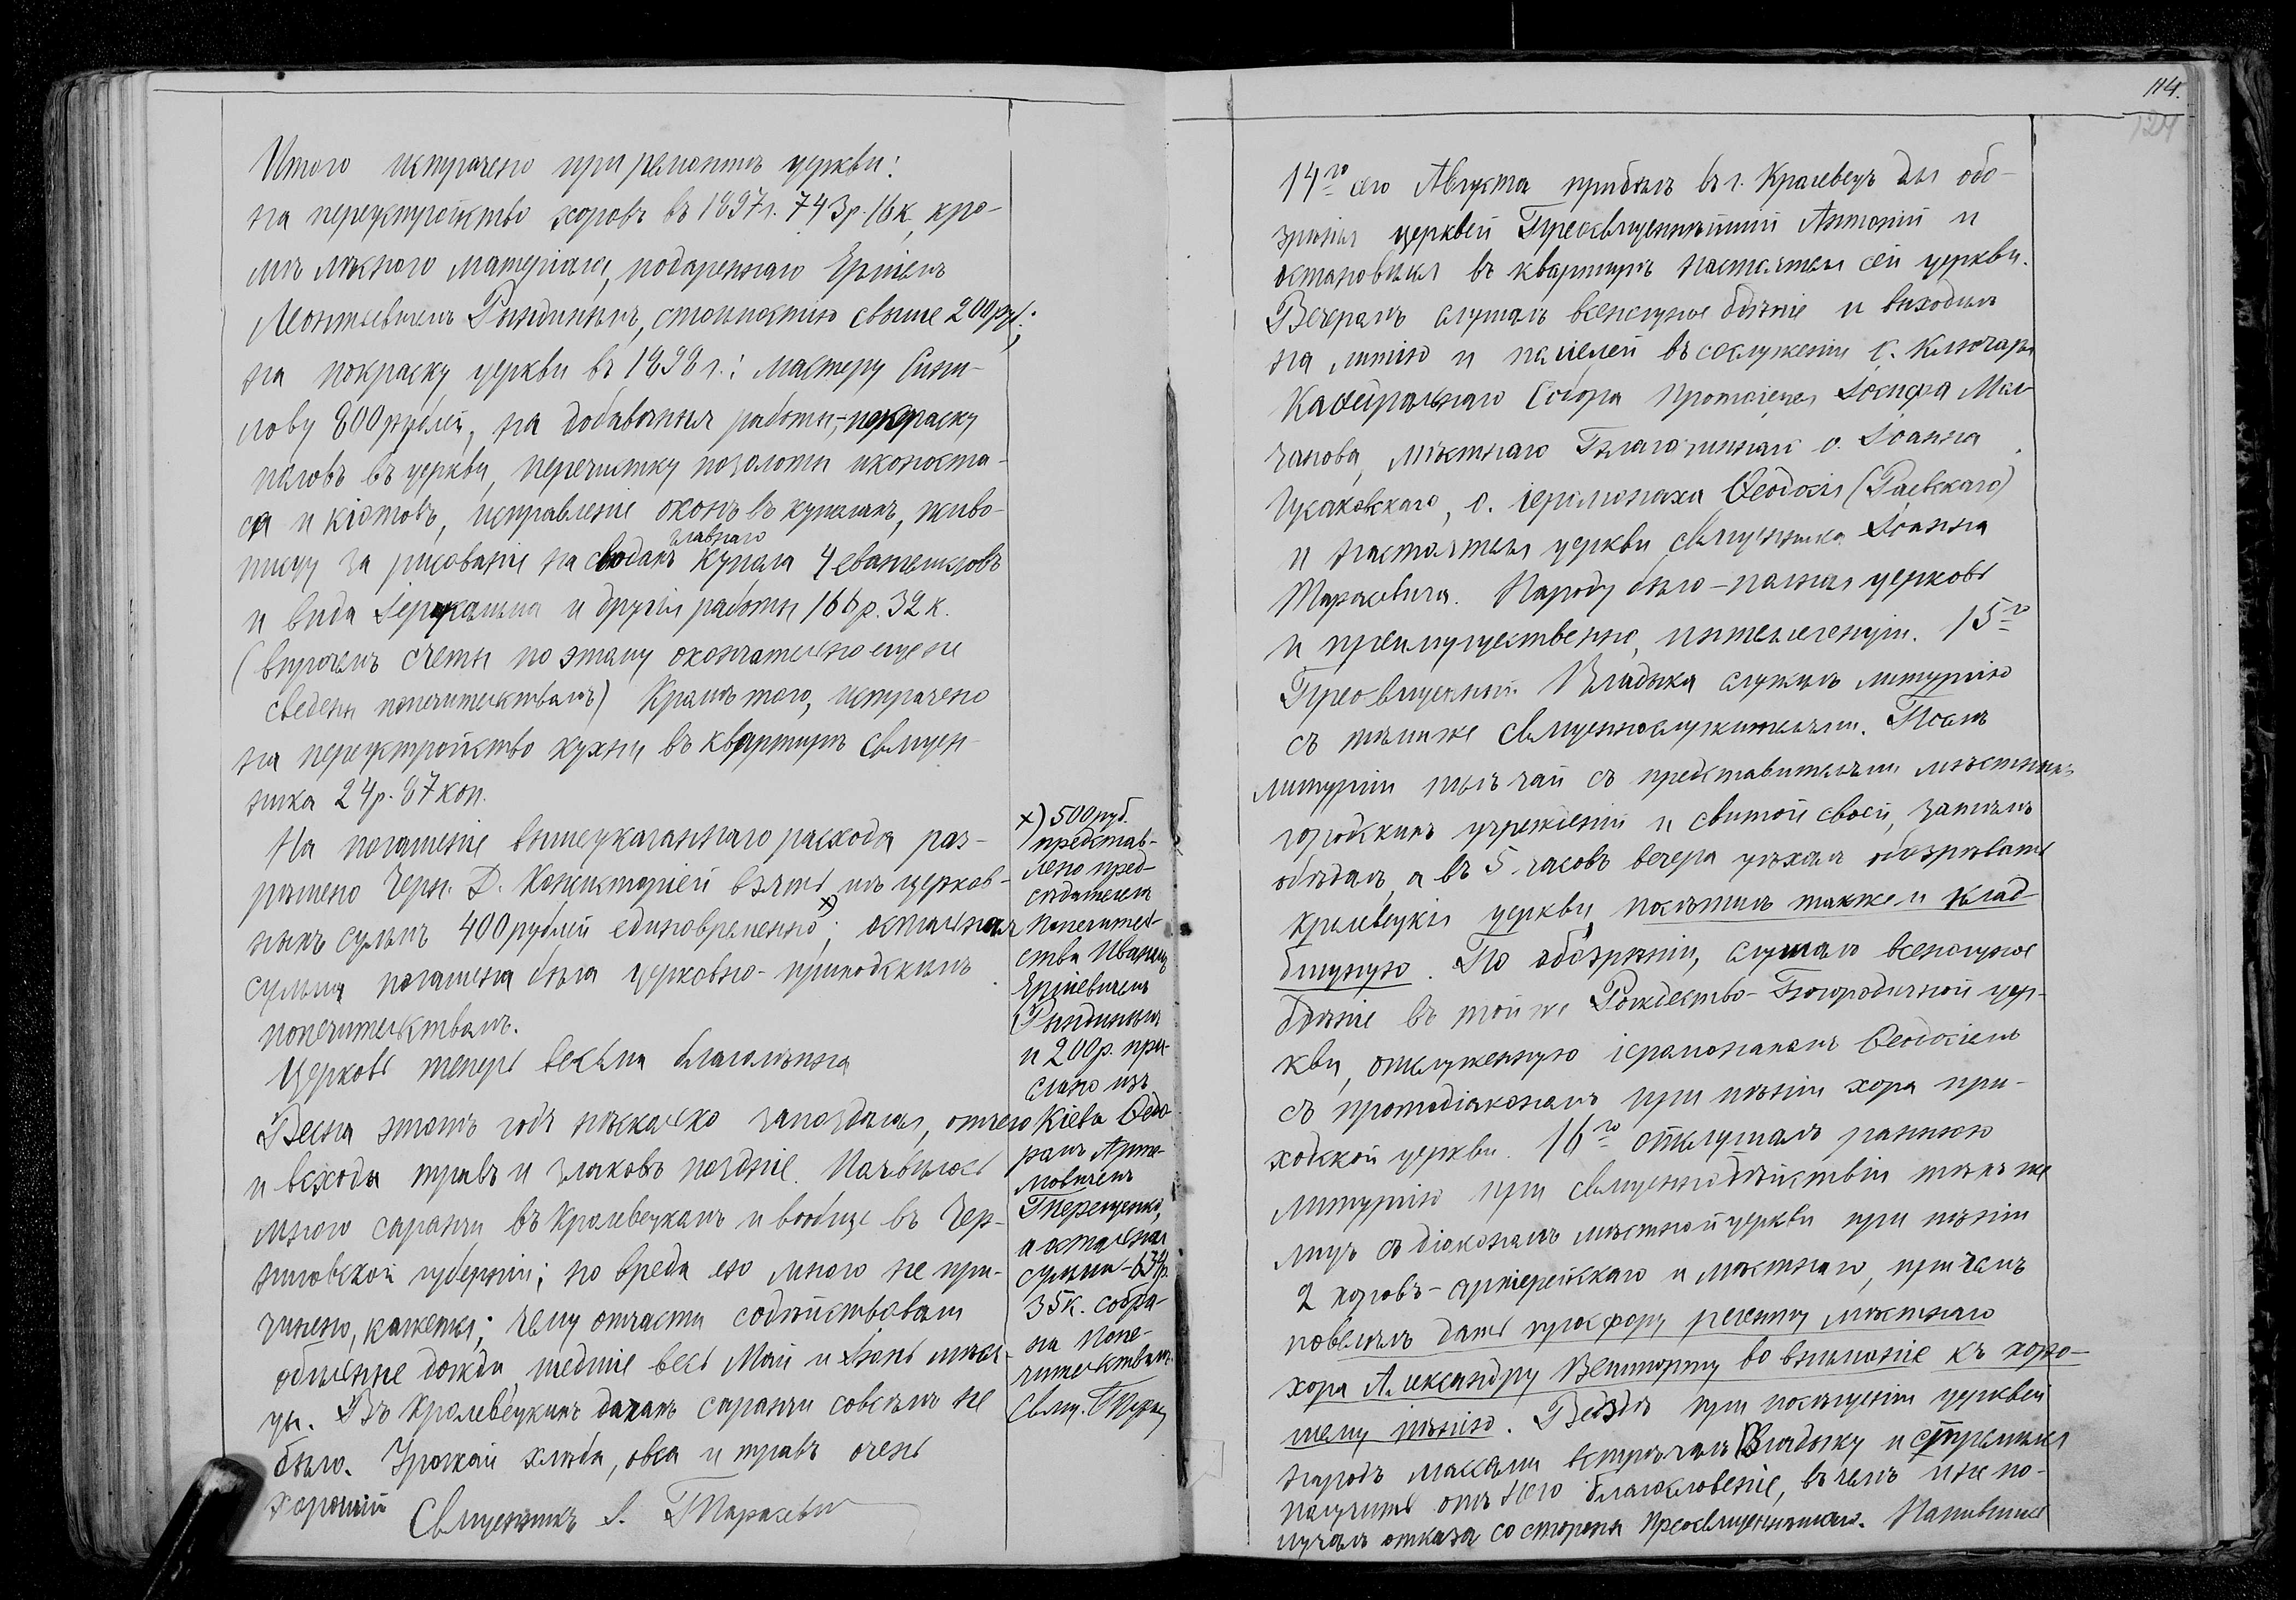 Итого истрачено при ремонтѣ церкви:
на переустройство хоровъ въ 1897 г. 743 р. 16 к., кро-
мѣ лѣсного матеріала, подареннаго Ерміемъ
Леонтьевичемъ Рындинымъ, стоимостію свыше 200 руб.;
на покраску церкви въ 1898 г.: мастеру
лову 800 рублей, на добавочныя работы,-покраску
половъ въ церкви, перечистку позолоты иконоста-
са и кіотовъ, исправленіе оконъ въ куполахъ, живо-
писцу за рисованіе на сводахъ главнаго купола 4 евангелистовъ
и вида Іерусалима и другія работы 166 р. 32 к.
(впрочемъ счеты по этому окончательно еще не
сведены попечительствомъ) Кромѣ того, истрачено
на переустройство кухни въ квартирѣ священ-
ника 24 р. 87 коп.
На погашеніе вышеуказаннаго расхода раз-
рѣшено Черн. Д. Консисторіей взять изъ церков-
ныхъ суммъ 400 рублей единовременно x); остальная
сумма погашена была церковно-приходскимъ
попечительствомъ.
Церковь теперь весьма благолѣпна
Весна этотъ годъ нѣсколько запоздала, отчего
и всходы травъ и злаковъ поздніе. Появилось
много саранчи въ Кролевецкомъ и вообще въ Чер-
ниговской губерніи; но вреда ею много не при-
чинено, кажется; чему отчасти содѣйствовали
обильные дожди, шедшіе весь Май и Іюнь мѣся-
цы. Въ Кролевецкихъ дачахъ саранчи совсѣмъ не
было. Урожай хлѣба, овса и травъ очень
хорошій
Священникъ І. Тарасевич
x) 500 руб.
представ-
лено пред-
сѣдателемъ
попечитель-
ства Иваномъ
Ерміевичемъ
Рындинымъ
и 200 р. при-
слано изъ
Кіева Ѳедо-
ромъ Арте-
мовичемъ
Терещенко,
а остальная
сумма - 634 р.
35 к. собра-
на попе-
чительствомъ.
Свящ. Тарас
114.
124
14го сего Августа прибылъ въ г. Кролевецъ для обо-
зрѣнія церквей Преосвященнѣйшій Антоній и
остановился въ квартирѣ настоятеля сей церкви.
Вечеромъ слушалъ всенощное бдѣніе и выходилъ
на литію и полиелей въ сослуженіи о. ключаря
Каѳедральнаго Собора Протоіерея Іосифа Мол-
чанова, мѣстнаго Благочиннаго о. Іоанна
о. іеромонаха Ѳеодосія (Раевскаго)
и настоятеля церкви священника Іоанна
Тарасевича. Народу было - полная церковь
и преимущественно, интеллигенціи. 15го
Преосвященный Владыка служилъ литургію
съ тѣми же священнослужителями. Послѣ
литургіи пилъ чай съ представителями мѣстныхъ
городскихъ учрежденій и свитой своей, затѣмъ
обѣдалъ, а въ 5 часовъ вечера уѣхалъ обозрѣвать
Кролевецкія церкви, посѣтилъ также и клад-
бищную. По обозрѣніи, слушалъ всенощное
бдѣніе въ той же Рождество-Богородичной цер-
кви, отслуженную іеромонахомъ Ѳеодосіемъ
съ протодіакономъ при пѣніи хора при-
ходской церкви. 16го отслушалъ раннюю
литургію при священнодѣйствіи тѣхъ же
лицъ съ діакономъ мѣстной церкви при пѣніи
2 хоровъ - архіерейскаго и мѣстнаго, причемъ
повелѣлъ дать просфору регенту мѣстнаго
хора Александру во вниманіе къ хоро-
шему пѣнію. Вездѣ при посѣщеніи церквей
народъ массами встрѣчалъ Владыку и стремился
получить отъ Него благословеніе, въ чемъ и не по-
лучалъ отказа со стороны Преосвященнѣйшаго.